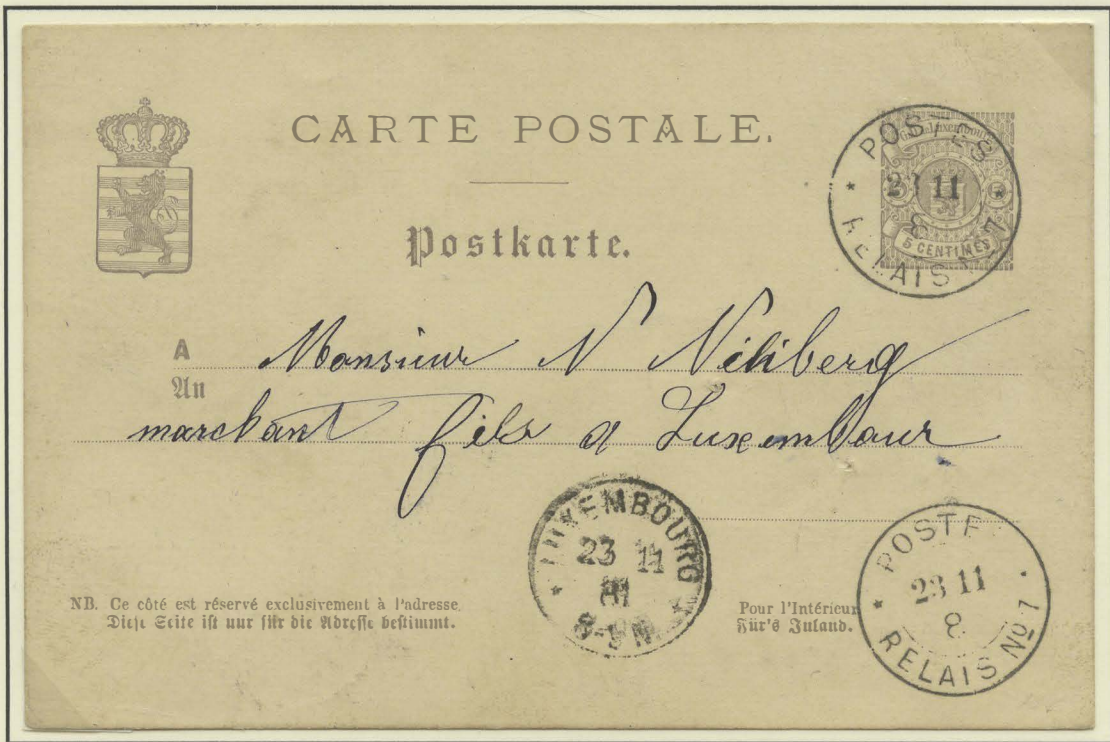 CARTE POSTALE.
Postkarte.
G. D. de Luxembourg
5 CENTIMES
POSTES
23 11
8
RELAIS No 1
A Monsieur N
An
marchant fils a Luxembour
LUXEMBOURG
23 11
81
8-9N
POSTE
23 11
8
RELAIS No 1
NB. Ce côté est réservé exclusivement à l'adresse.
Diese Seite ist nur für die Adresse bestimmt.
Pour l'Intérieur
Für's Inland.